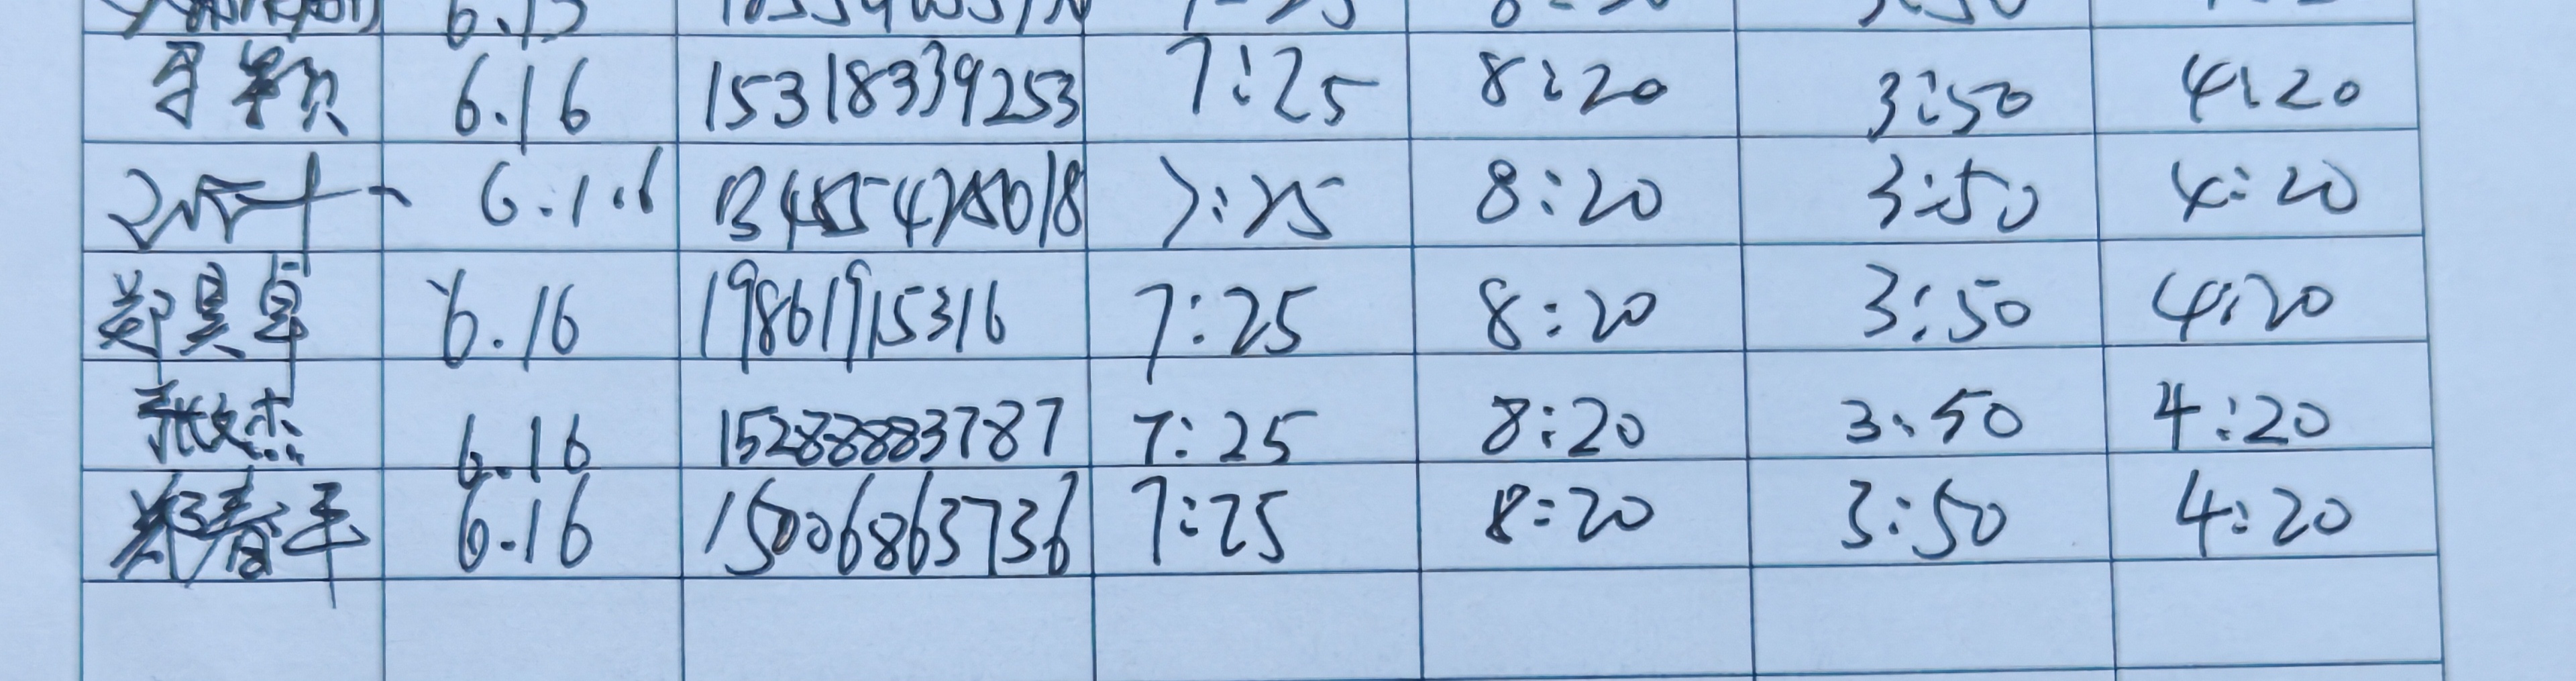 6.16 15318339253 7:25 8:20 3:50 4:20
6.16 7:25 8:20 3:50 4:20
郑昊卓 6.16 19861915316 7:25 8:20 3:50 4:20
张文杰 6.16 15288883787 7:25 8:20 3:50 4:20
郑春平 6.16 15006863736 7:25 8:20 3:50 4:20